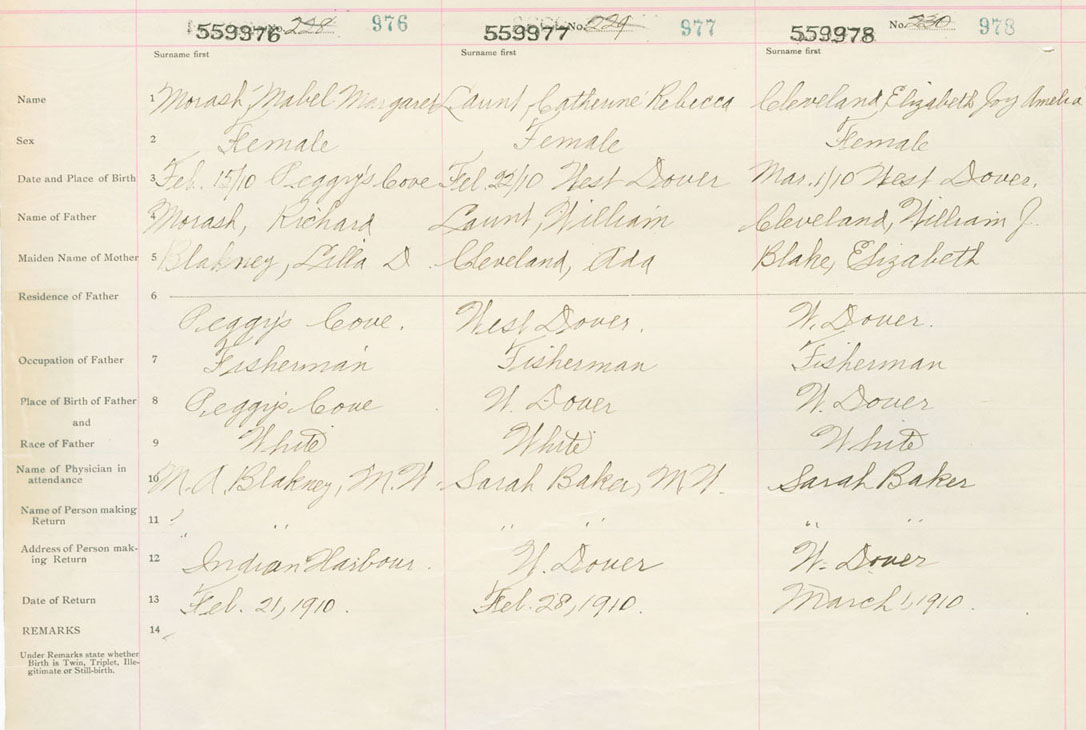 559976 No. 228 976 559977 No. 229 977 559978 No. 230 978
Surname first Surname first Surname first
Name 1 Morash, Mabel Margaret Launt, Catherine Rebecca Cleveland, Elizabeth Joy Amelia
Sex 2 Female Female Female
Date and Place of Birth 3 Feb. 15/10 Peggy's Cove Feb. 22/10 West Dover Mar. 1/10 West Dover.
Name of Father 4 Morash, Richard Launt, William Cleveland, William J.
Maiden Name of Mother 5 Blakney, Lilla D. Cleveland, Ada Blake, Elizabeth
Residence of Father 6
Peggy's Cove. West Dover. W. Dover.
Occupation of Father 7 Fisherman Fisherman Fisherman
Place of Birth of Father 8 Peggy's Cove W. Dover W. Dover
and
Race of Father 9 White White White
Name of Physician in
attendance 10 M. A. Blakney, M.W. Sarah Baker, M.W. Sarah Baker
Name of Person making
Return 11 " " " " " "
Address of Person mak-
ing Return 12 Indian Harbour. W. Dover W. Dover
Date of Return 13 Feb. 21, 1910. Feb. 28, 1910. March 1, 1910.
REMARKS 14
Under Remarks state whether
Birth is Twin, Triplet, Ille-
gitimate or Still-birth.